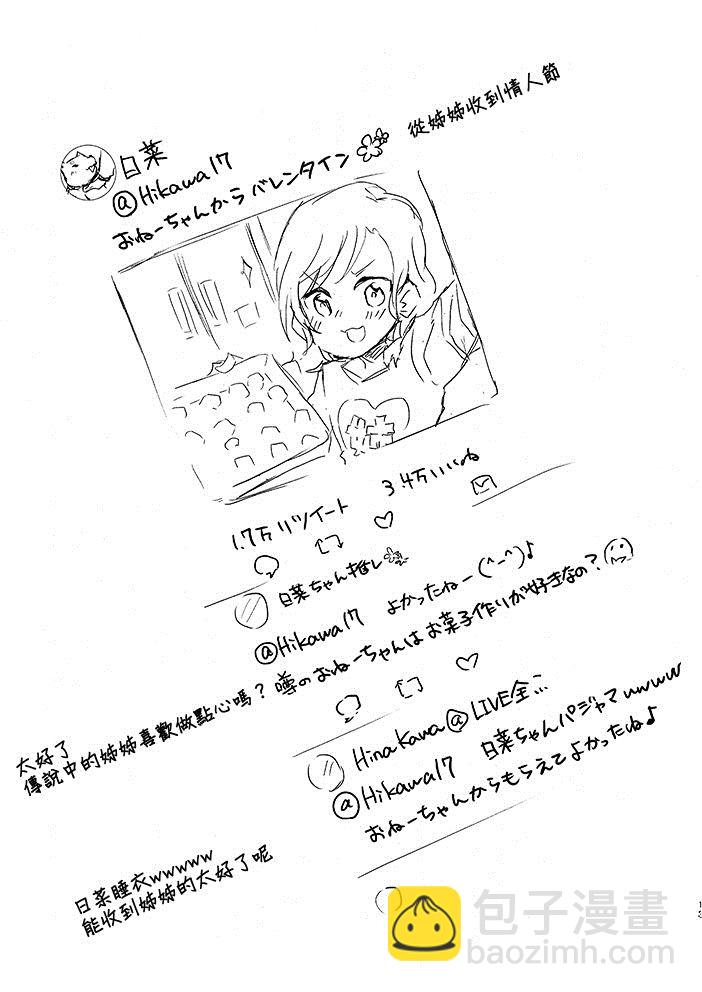 從姊姊收到情人節
日菜
@Hikawa17
おねーちゃんからバレンタイン
姉
1.7万リツイート 3.4万いいね
日菜ちゃん推し
@Hikawa17 よかったねー(^-^)♪
噂のおねーちゃんはお菓子作りが好きなの?
太好了
傳說中的姊姊喜歡做點心嗎?
Hinakawa@LIVE全...
@Hikawa17 日菜ちゃんパジャマwwww
おねーちゃんからもらえてよかったね♪
日菜睡衣wwwww
能收到姊姊的太好了呢
13
包子漫畫
baozimh.com